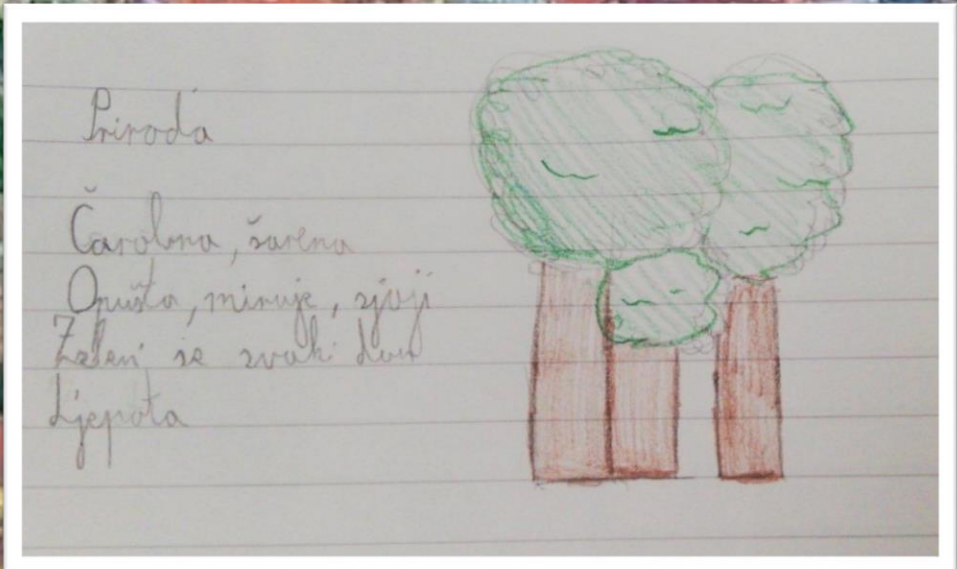 Priroda
Čarobna, šarena
Opušta, miruje, sjaji
Zeleni se svaki dan
Ljepota